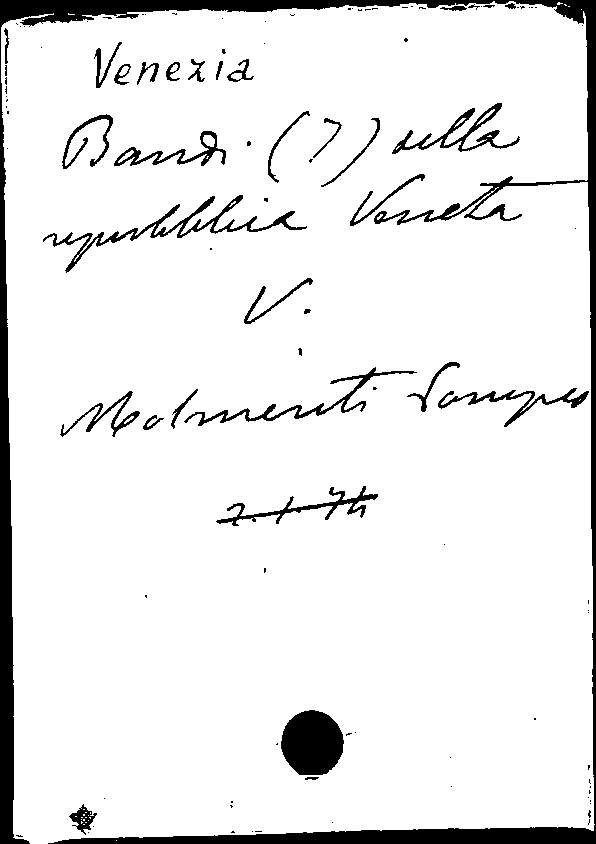 Venezia
Bandi (7) della
repubblica Veneta
V.
Molmenti Pompeo
7.1.74